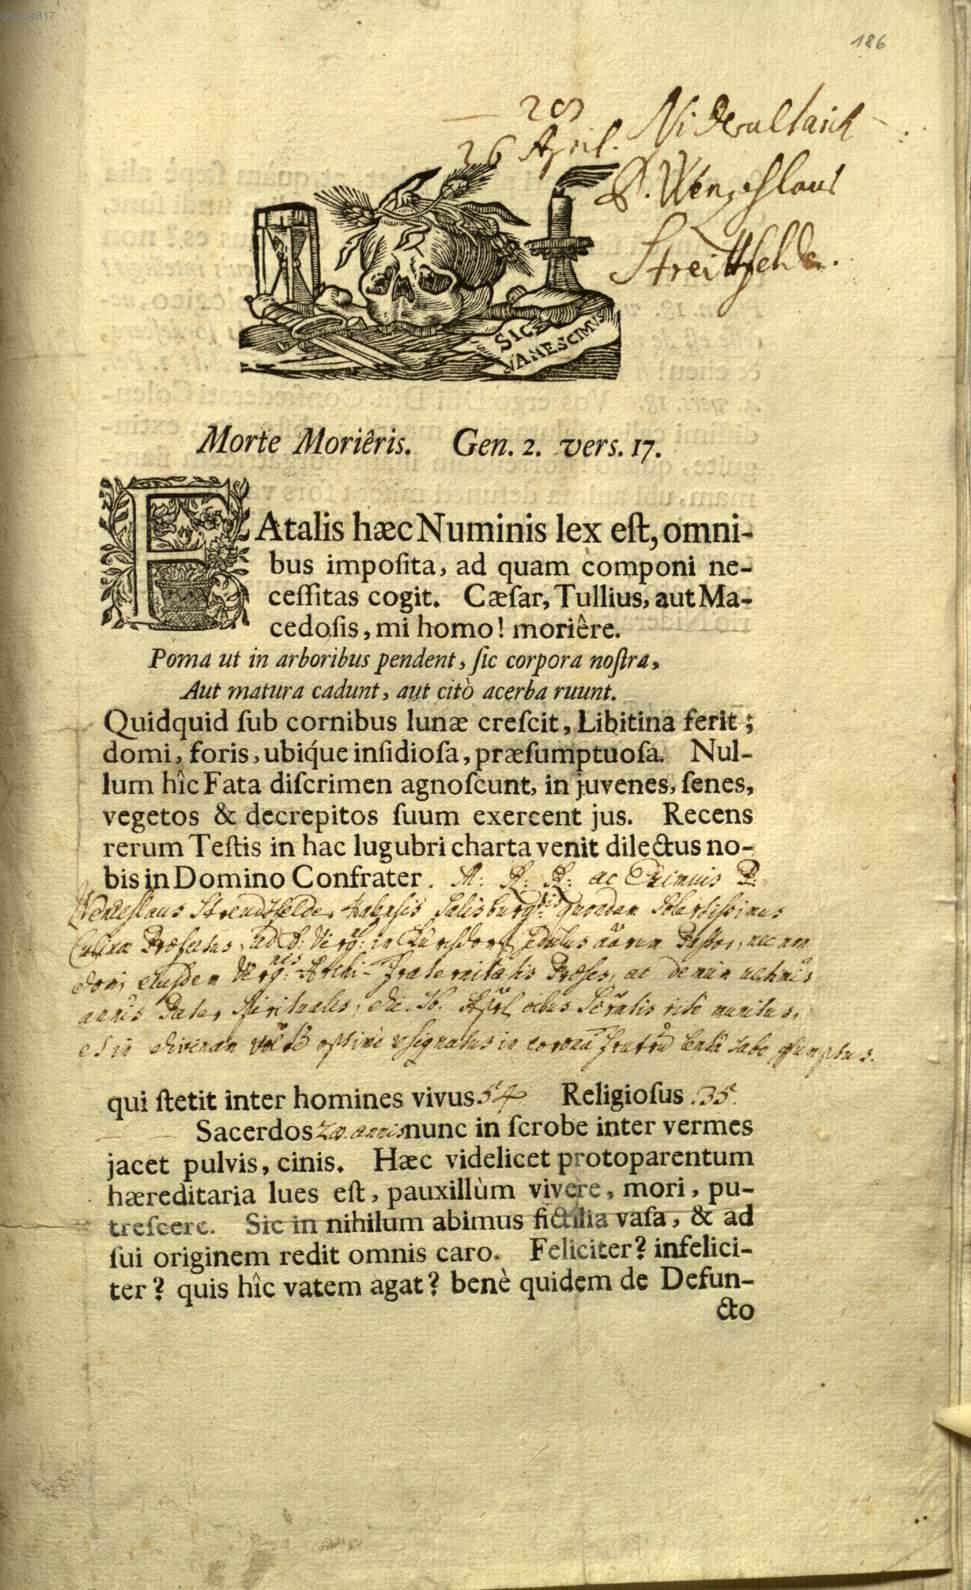 186
26 April. Nideraltaich
P. Wenzeslaus
Streittfelder.
SIC
VANESCIMUS
Morte Moriêris. Gen. 2. vers. 17.
FAtalis hæc Numinis lex eſt, omni-
bus impoſita, ad quam componi ne-
ceſſitas cogit. Cæſar, Tullius, aut Ma-
cedoſis, mi homo! moriêre.
Poma ut in arboribus pendent, ſic corpora noſtra,
Aut matura cadunt, aut citò acerba ruunt.
Quidquid ſub cornibus lunæ creſcit, Libitina ferit;
domi, foris, ubiq́ue inſidioſa, præſumptuoſa. Nul-
lum hîc Fata diſcrimen agnoſcunt, in juvenes, ſenes,
vegetos & decrepitos ſuum exercent jus. Recens
rerum Teſtis in hac lugubri charta venit dilectus no-
bis in Domino Confrater. A: R: R: ac Eximius P.
Wenceslaus Salisburg: quondam
Culinæ Præfectus, ad B: Virg: in sedulus Pastor, nec non
ejusdem Virg: Archi-Fraternitatis Præses, ac demum
annis Pater Spiritualis, rite munitus,
qui ſtetit inter homines vivus 54 Religioſus 35.
Sacerdos annis nunc in ſcrobe inter vermes
jacet pulvis, cinis. Hæc videlicet protoparentum
hæreditaria lues eſt, pauxillùm vivere, mori, pu-
treſcere. Sic in nihilum abimus fictilia vaſa, & ad
ſui originem redit omnis caro. Feliciter? infelici-
ter? quis hîc vatem agat? benè quidem de Defun-
cto